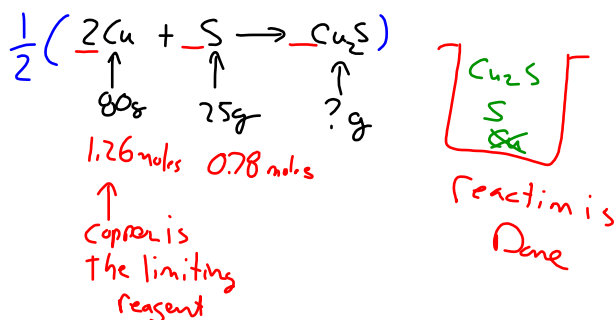 1/2 ( 2Cu + _S → _Cu₂S )
80g 25g ? g
1.26 moles 0.78 moles
Copper is
the limiting
reagent
Cu₂S
S
Cu
reaction is
Done